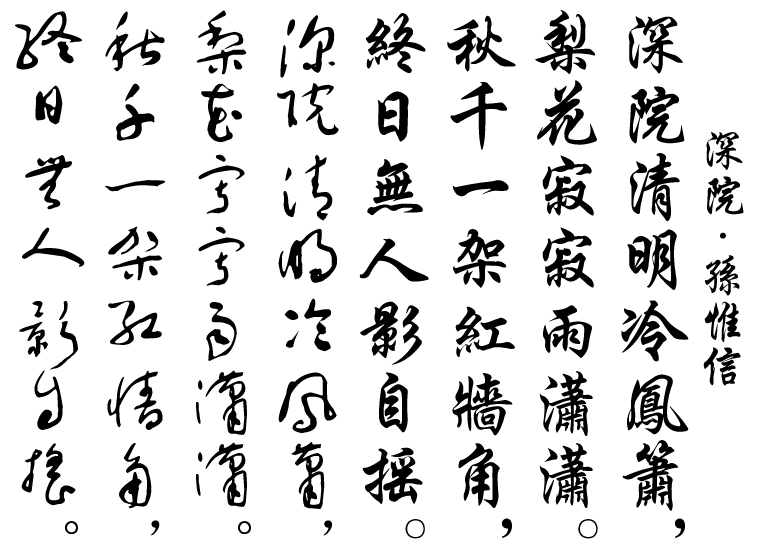 深院·孫惟信
深院清明冷鳳簫，
梨花寂寂雨瀟瀟。
秋千一架紅牆角，
終日無人影自搖。
深院清明冷鳳簫，
梨花寂寂雨瀟瀟。
秋千一架紅牆角，
終日無人影自搖。